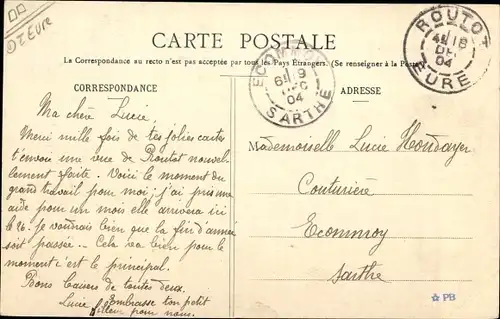 Ø Eure
CARTE POSTALE
La Correspondance au recto n'est pas acceptée par tous les Pays Étrangers. (Se renseigner à la Poste)
ROUTOT
4E 8
DEC
04
EURE
ECOMMOY
6E 9
DEC
04
SARTHE
CORRESPONDANCE
Ma chère Lucie,
Merci mille fois de tes jolies cartes
t'envoie une vue de Routot nouvel-
lement faite. Voici le moment du
grand travail pour moi; j'ai pris une
aide pour un mois elle arrivera ici
le 26. je voudrais bien que la fin d'année
soit passée. Cela va bien pour le
moment c'est le principal.
Bons baisers de toutes deux.
Lucie Embrasse ton petit
filleul pour nous.
ADRESSE
Mademoiselle Lucie Houdayer
Couturière
Ecommoy
Sarthe
PB